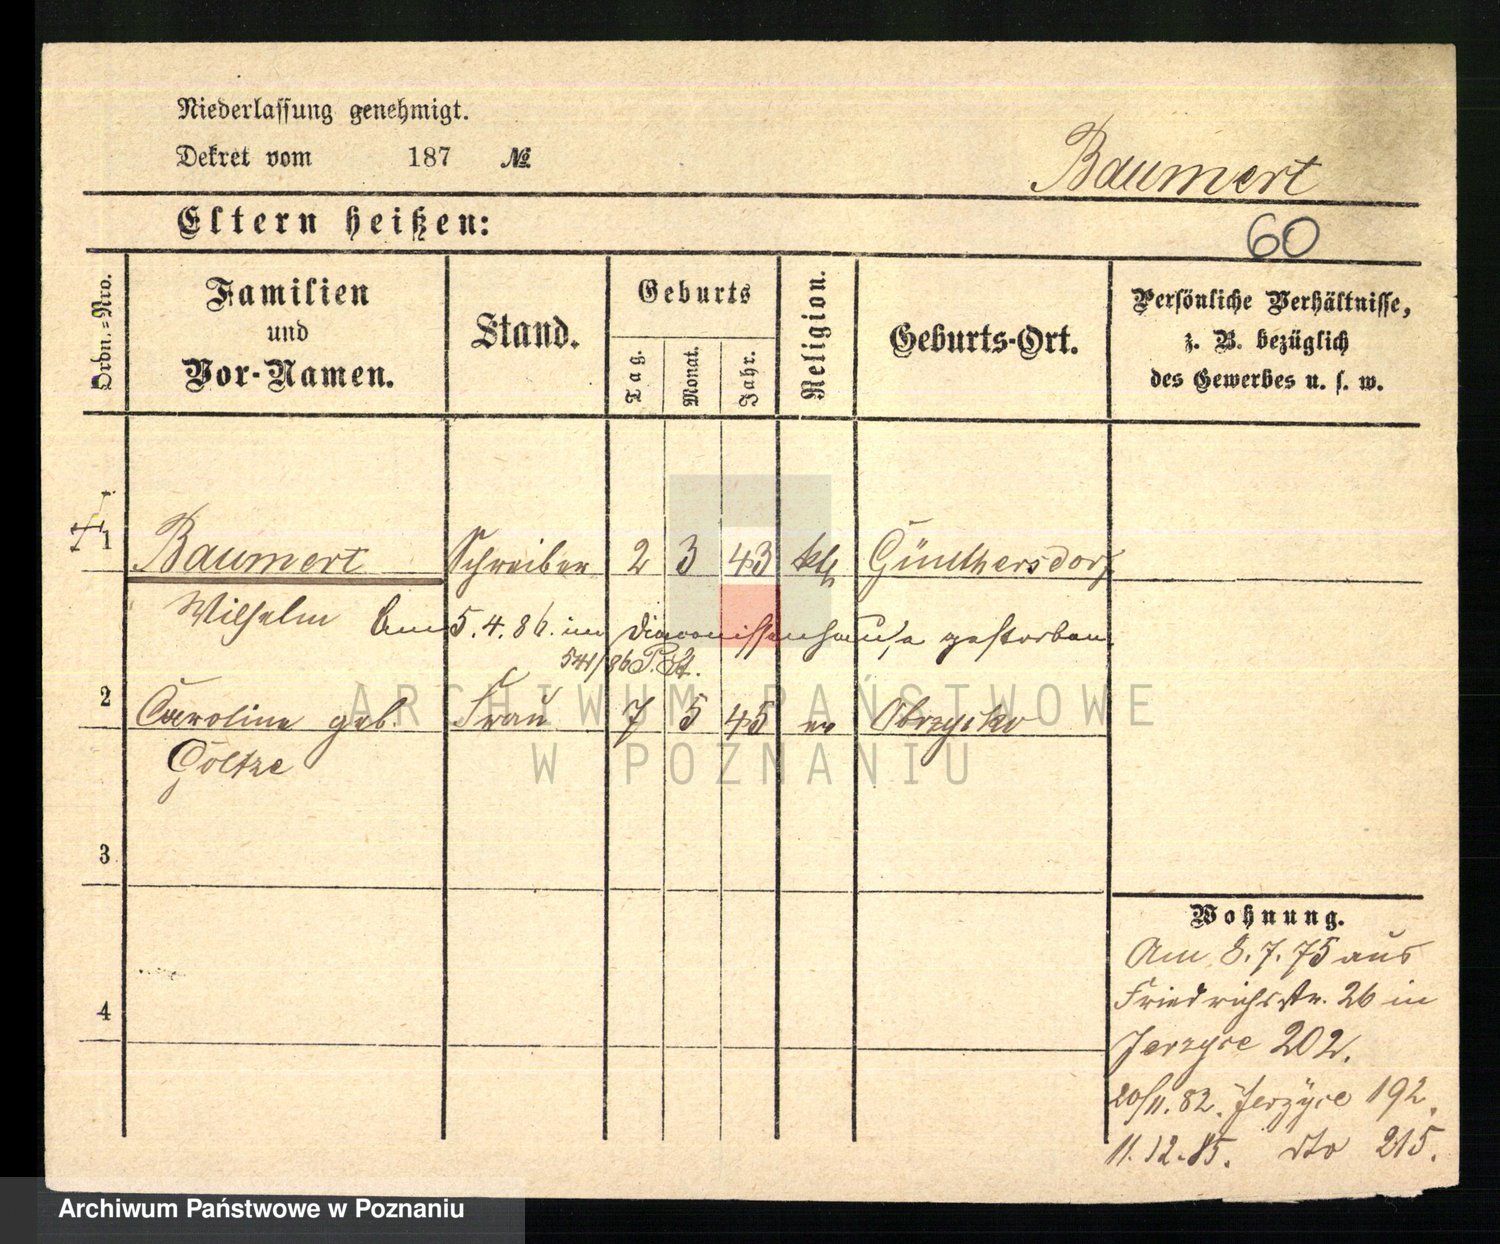 Niederlassung genehmigt.
Dekret vom 187 №
Baumert
Eltern heißen:
60
Ordn.=Nro.
Familien
und
Vor-Namen.
Stand.
Geburts
Tag.
Monat.
Jahr.
Religion.
Geburts-Ort.
Persönliche Verhältnisse,
z. B. bezüglich
des Gewerbes u. s. w.
1 Baumert Schreiber 2 3 43 kth Günthersdorf
Wilhelm Am 5.4.86. im Diaconissenhause gestorben.
541/86 P. St.
2 Caroline geb. Frau 7 5 45 ev Obrzycko
Goltze
3
4
Wohnung.
Am 8.7.75 aus
Friedrichsstr. 26 in
Jerzyce 202.
20/11.82. Jerzyce 192.
11.12.85. dto 215.
ARCHIWUM PAŃSTWOWE
W POZNANIU
Archiwum Państwowe w Poznaniu